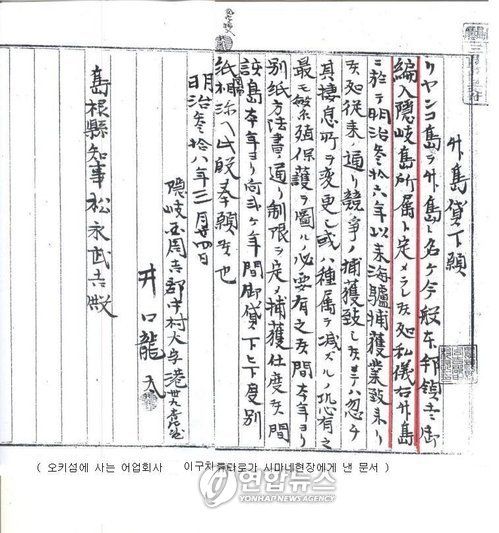 外島貸下願
リヤンコ島ヲ外島ト名ケ今般本邦領土ニ御
編入隠岐島所属ト定メラレ候処私儀右外島
ニ於テ明治参拾六年以来海驢捕獲業致来リ
候処従来ノ通リ競争ノ捕獲致シ候テハ忽チ
其棲息所ヲ変更シ或ハ種属ヲ減ズルノ恐有之
最モ繁殖保護ヲ図ルノ必要有之候間本年ヨリ
別紙方法書ノ通リ制限ヲ定メ捕獲仕度候間
該島本年ヨリ向 ケ年間御貸下 下度別
紙相添ヘ此段奉願候也
明治参拾八年三月廿四日
隠岐国周吉郡中村大字港
井口龍太
島根縣知事松永武吉殿
( 오키섬에 사는 어업회사 이구차 류타로가 시마네현장에게 낸 문서 )
연합뉴스
YONHAP NEWS AGENCY